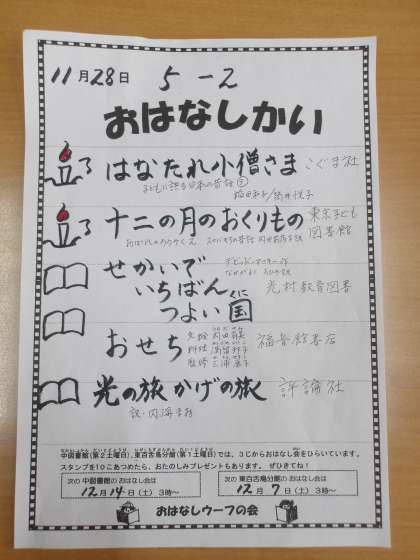 11月28日 5-2
おはなしかい
はなたれ小僧さま こぐま社
子どもに語る日本の昔話③
稲田和子/筒井悦子
十二の月のおくりもの 東京子ども図書館
おはなしのろうそく2 スロバキアの昔話 内田莉莎子訳
せかいで デビッド・マッキー作
いちばん なかがわちひろ訳
つよい国 くに 光村教育図書
おせち 文・絵 内田有美
料理 満留邦子 福音館書店
監修 三浦康子
光の旅 かげの旅 評論社
訳・内海まお
中図書館(第2土曜日)、東百舌鳥分館(第1土曜日)では、3じからおはなし会をひらいています。
スタンプを10こあつめたら、おたのしみプレゼントもあります。ぜひきてね!
次の 中図書館の おはなし会は
12月14日(土)3時~
次の 東百舌鳥分館の おはなし会は
12月7日(土)3時~
おはなしウーフの会